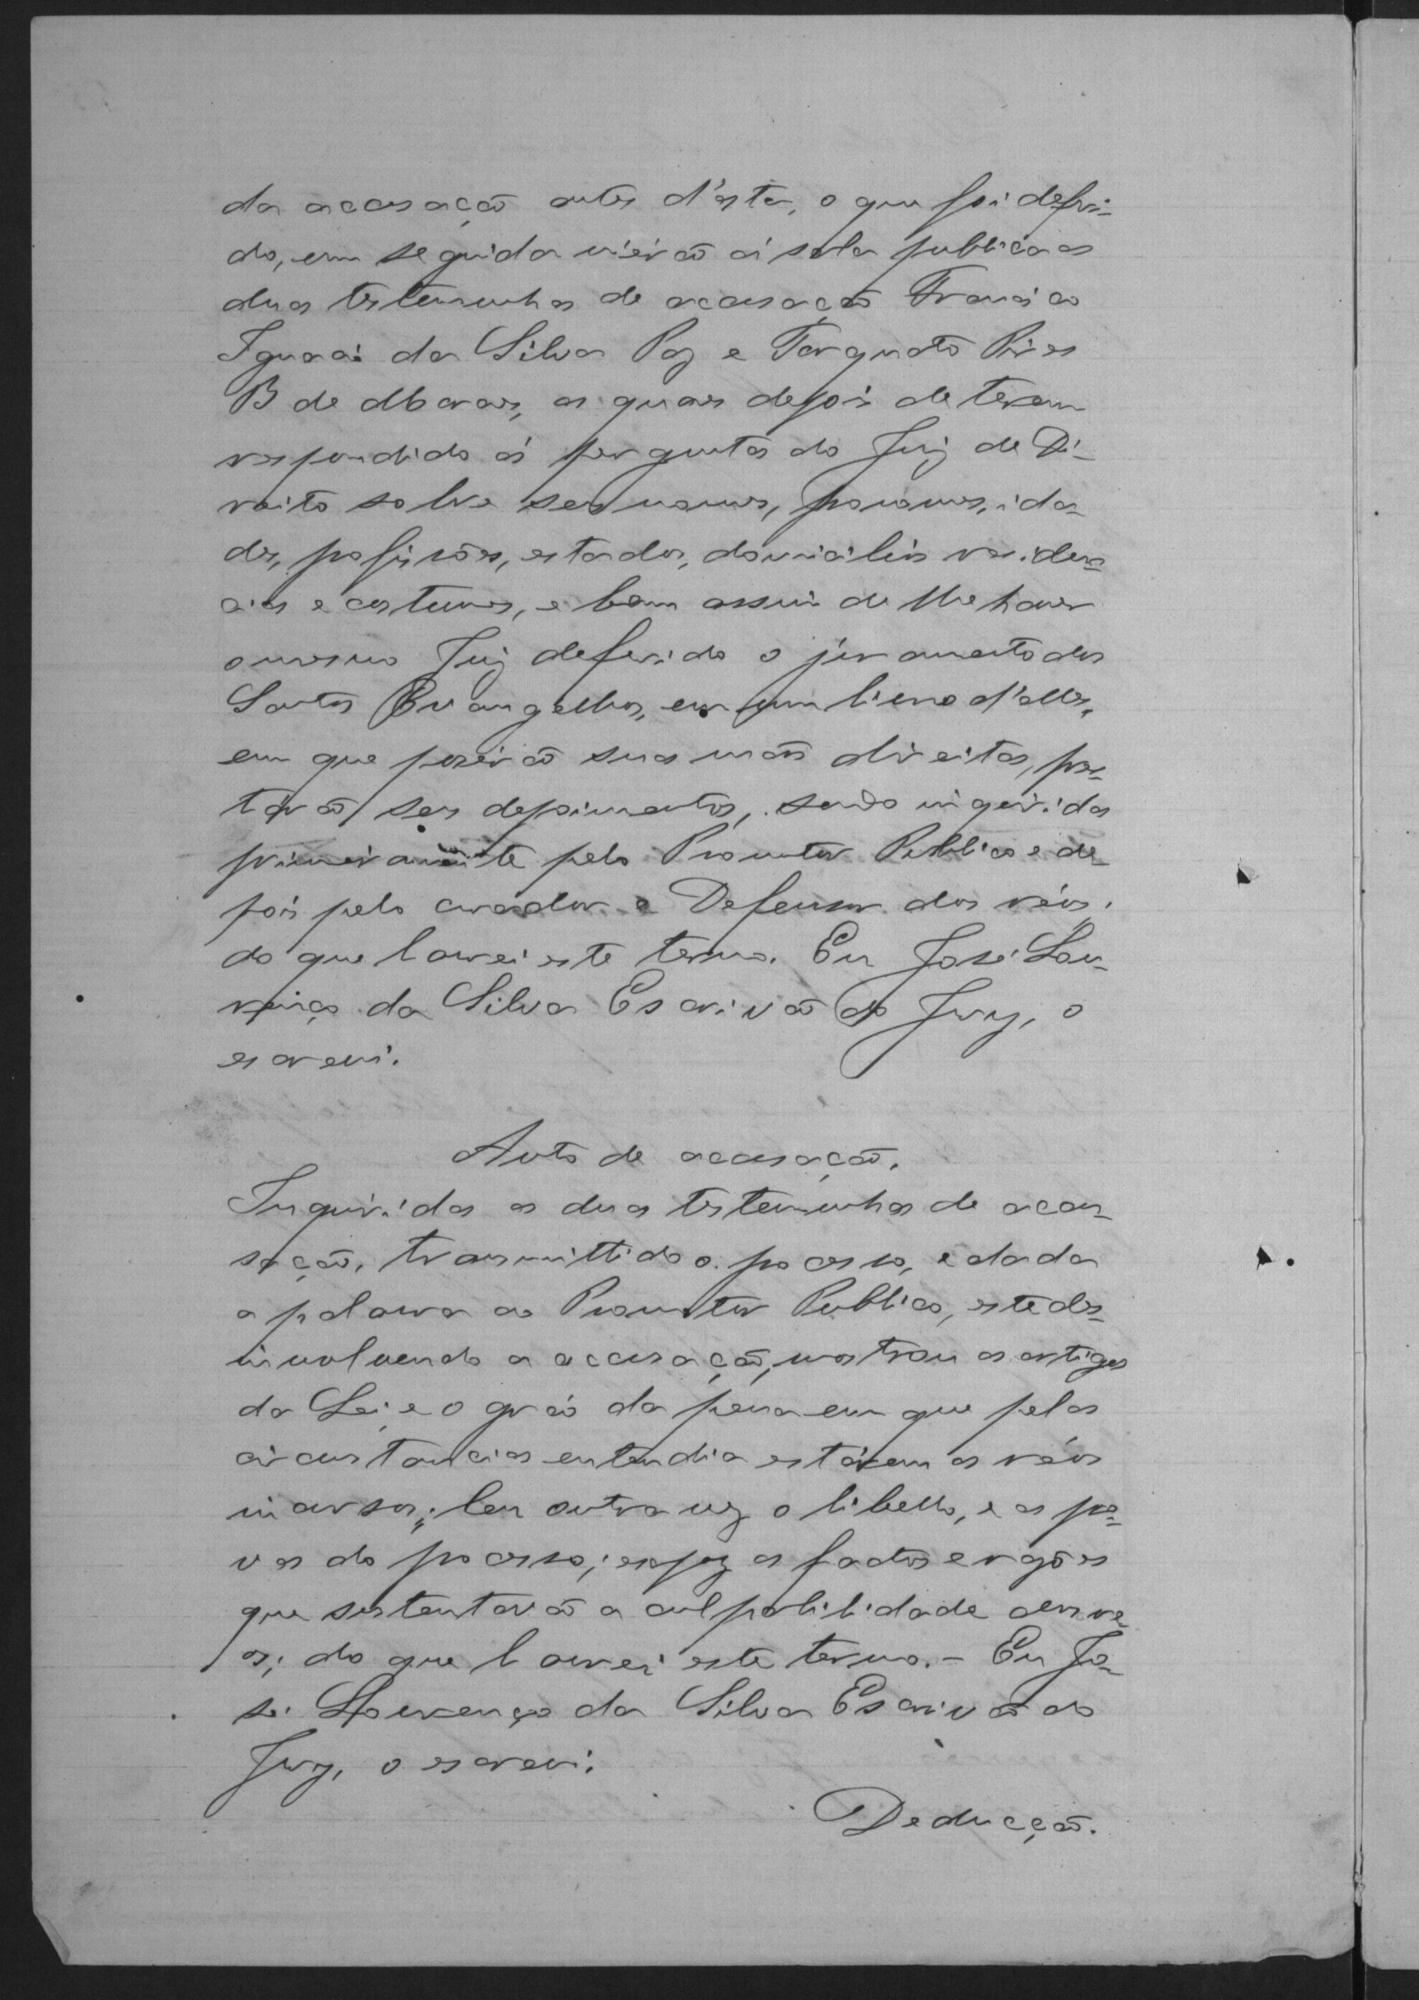 da accusação antes d'esta, o que foi deferi-
do, em seguida viérão á sala publica as
duas testemunhas de accusação Francisco
Ignacio da Silva Paz e Torquato Pires
B de Moraes, as quaes depois de terem
respondido ás perguntas do Juiz de Di-
reito sobre seus nomes, pronomes, ida-
des, profissões, estados, domicilios residen-
cias e costumes, e bem assim de lhe haver
o mesmo Juiz deferido o juramento dos
Santos Evangelhos, em um livro d'elles,
em que poserão suas mãos direitas, pres-
tarão seus depoimentos, sendo inqueridas
primeiramente pelo Promotor Publico e de-
pois pelo curador e Defensor dos réos;
do que lavrei este termo. Eu José Lou-
renço da Silva Escrivão do Jury, o
escrevi.
Auto de accusação.
Inquiridas as duas testemunhas de accu-
sação, transmittido o processo, e dada
a palavra ao Promotor Publico, este des-
involvendo a accusação, mostrou os artigos
da Lei e o gráo da pena em que pelas
circunstancias entendia estárem os réos
incursos; leu outra vez o libello, e as pro-
vas do processo; expoz os factos e razões
que sustentavão a culpabilidade dos re-
os; do que lavrei este termo. - Eu Jo-
sé Lourenço da Silva Escrivão do
Jury, o escrevi.
Deducção.